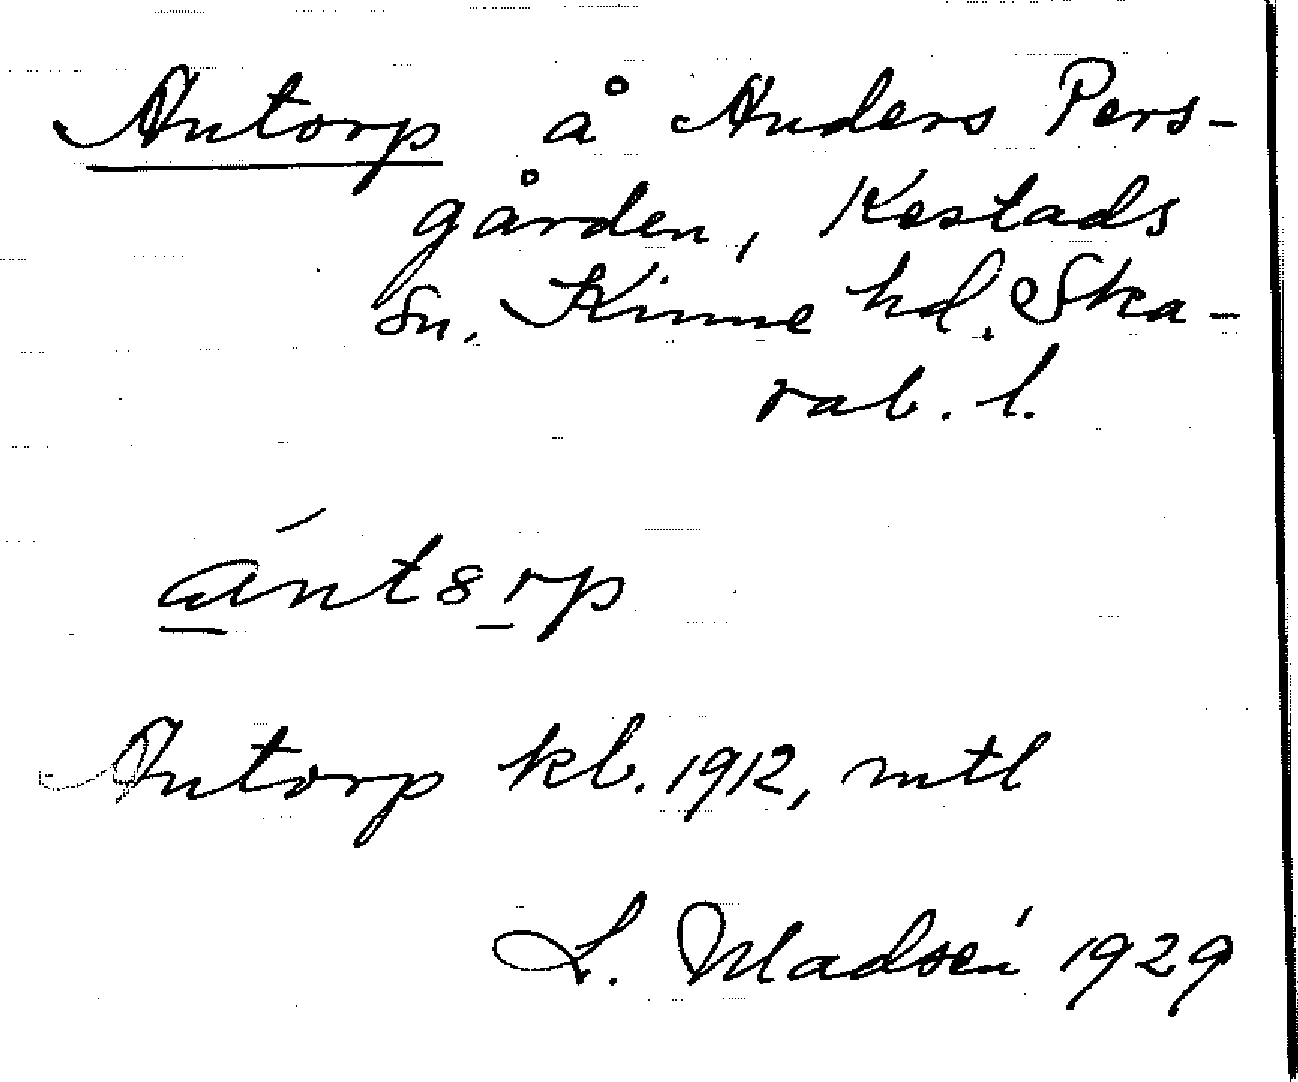 Antorp å Anders Pers-
gården, Kestads
sn. Kinne hd. Ska-
rab. l.
ánt8rp
Antorp kb. 1912, mtl
L. Madsén 1929